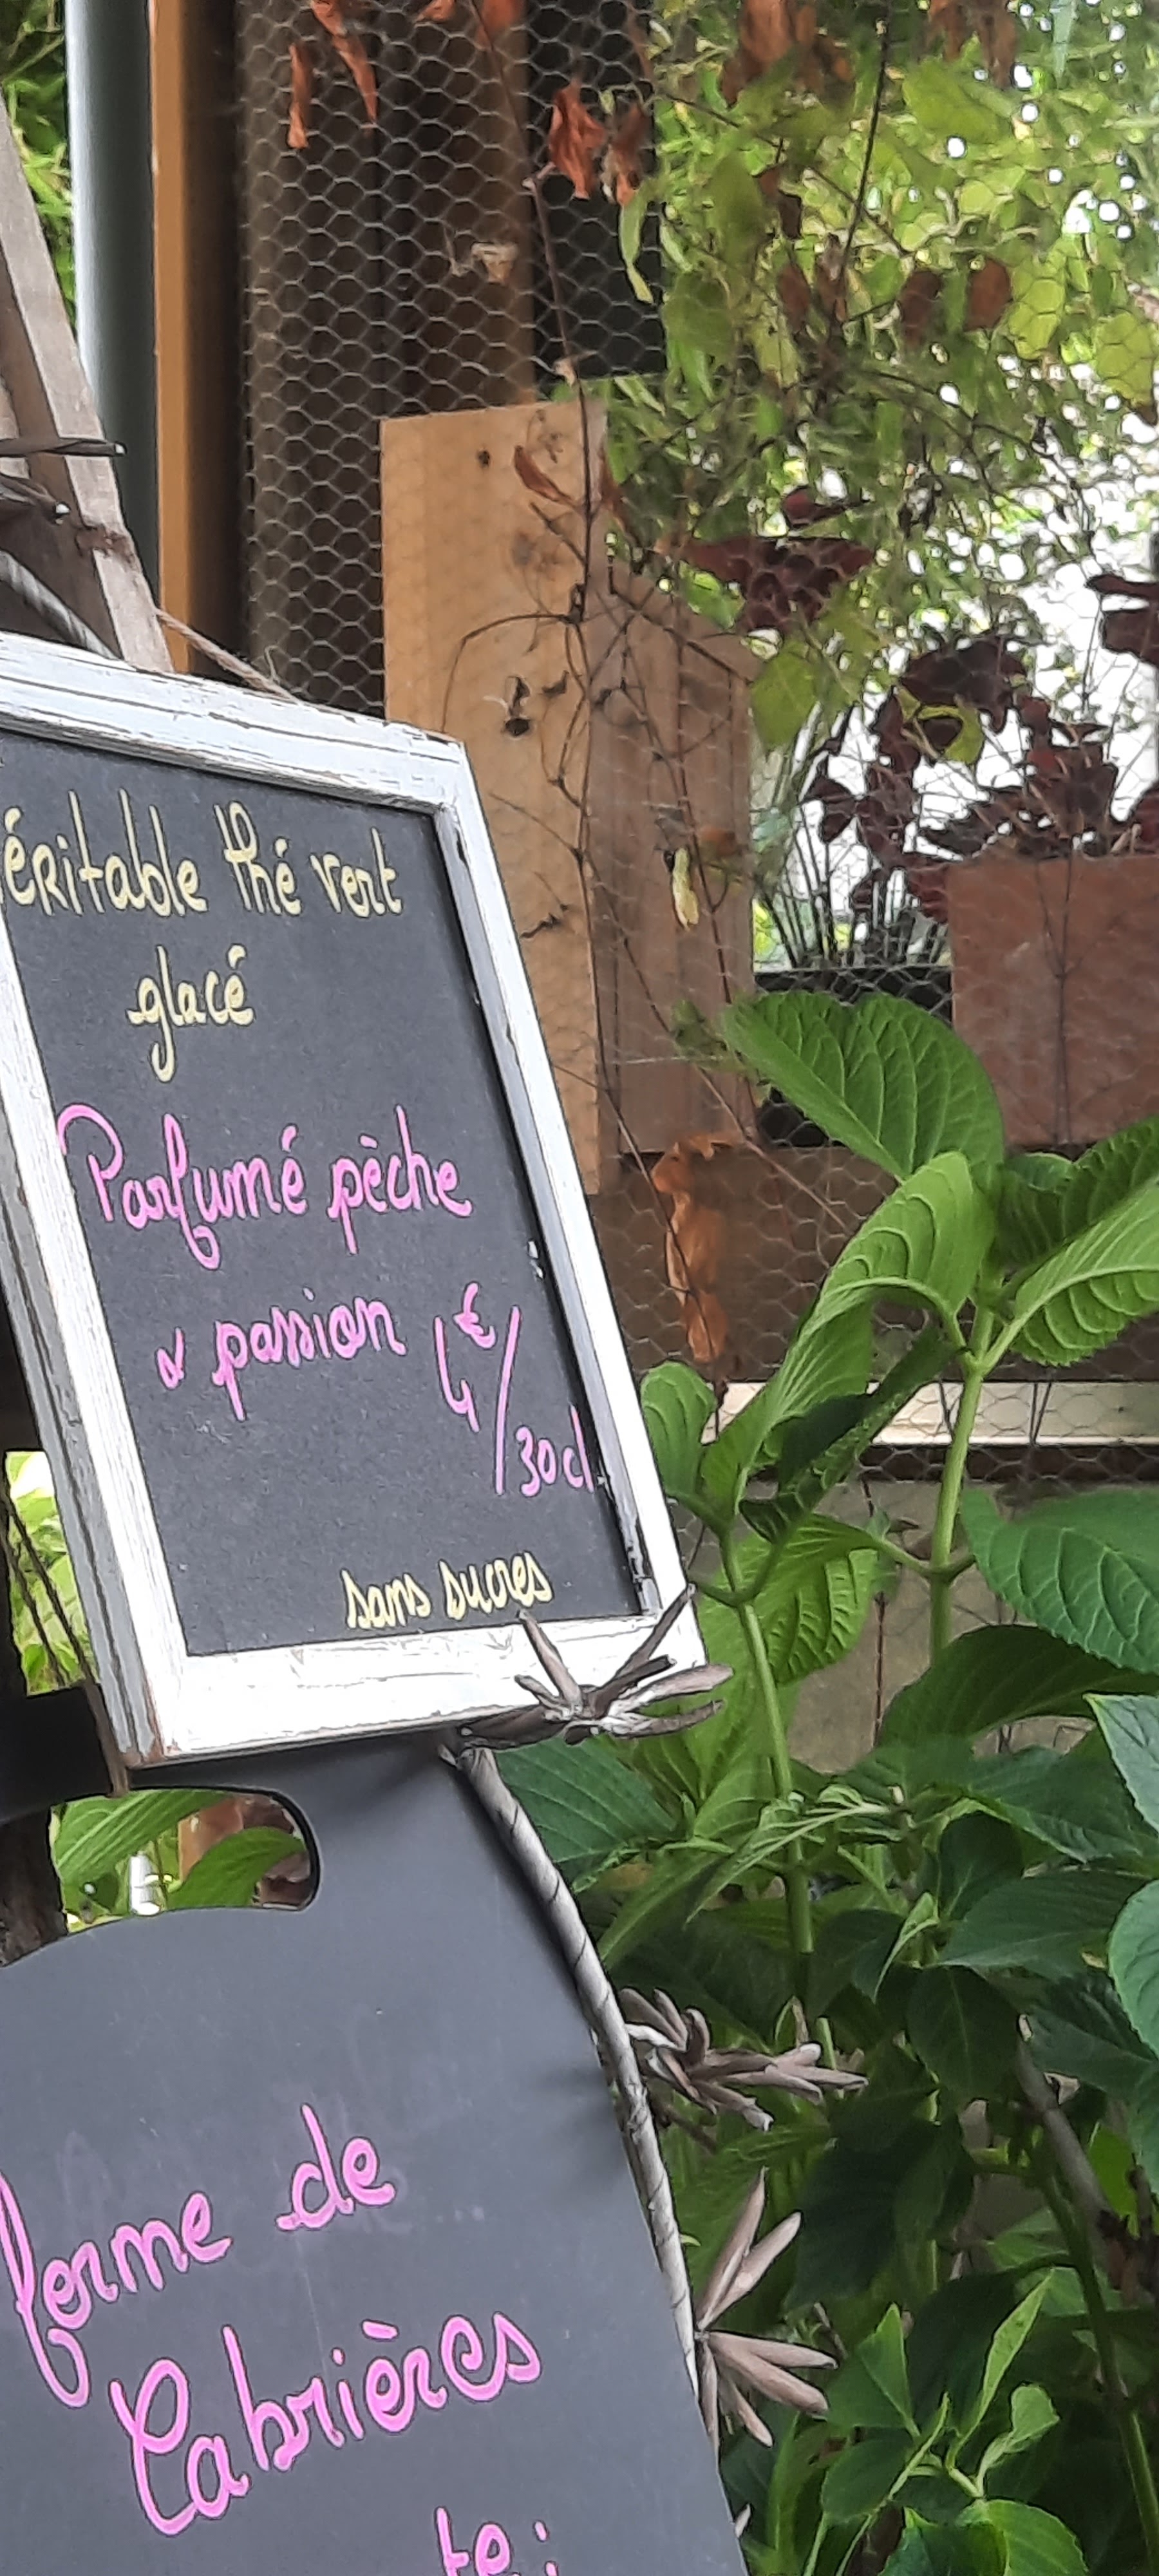 éritable thé vert
glacé
Parfumé pèche
& passion 4€/30cl
sans sucres
ferme de
Cabrières
te: